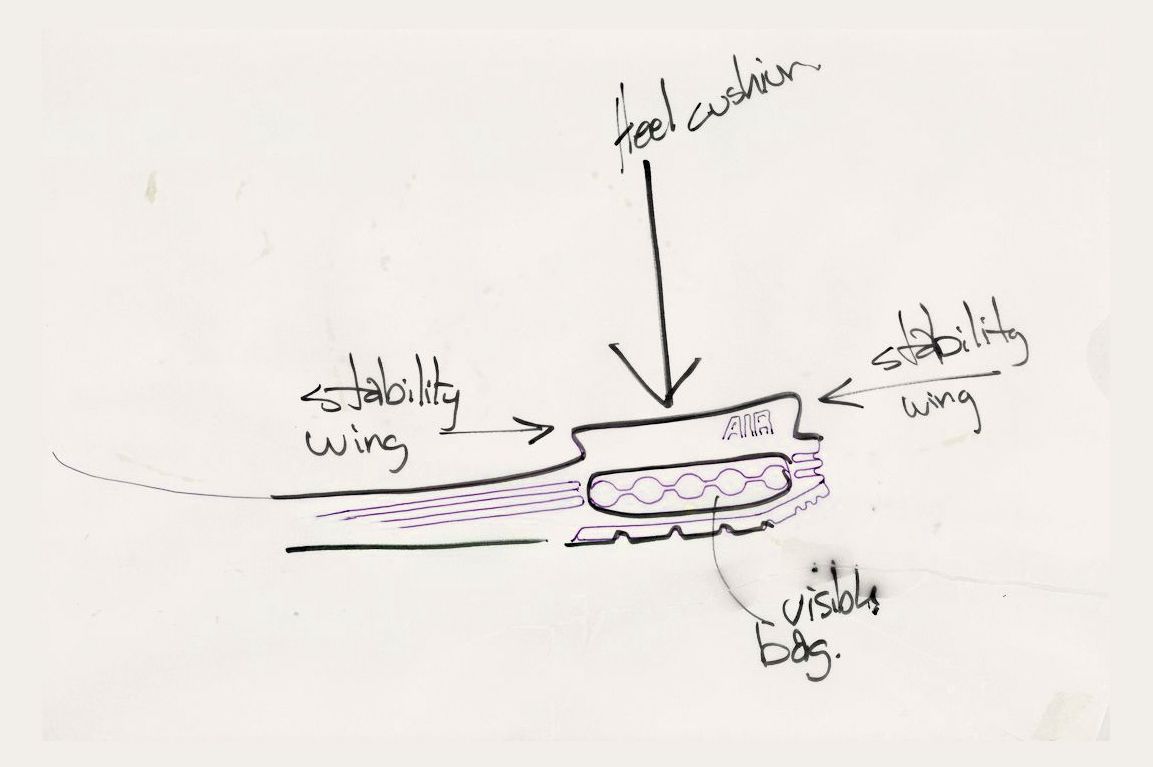 Heel cushion
stability
wing
stability
wing
AIR
visible
bag.